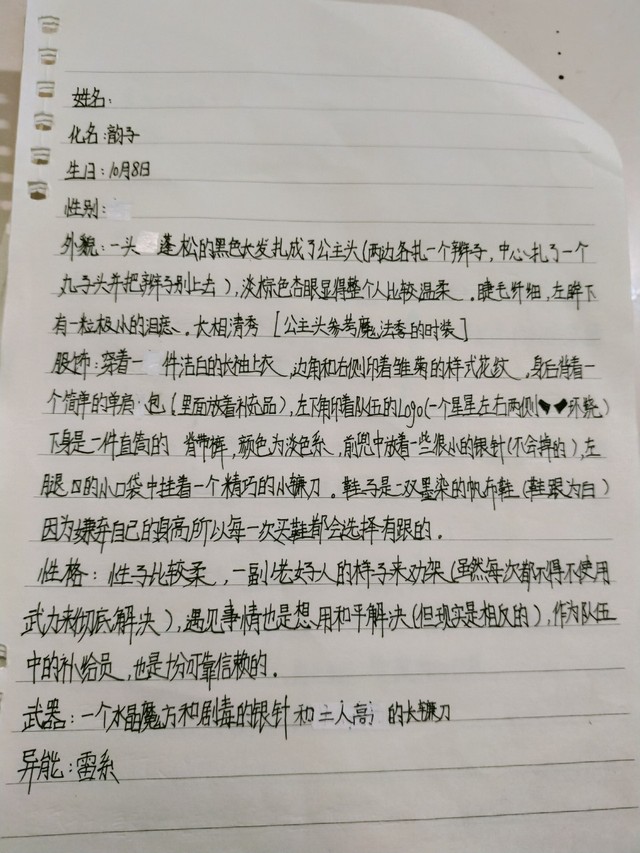 姓名：
化名：韵子
生日：10月8日
性别：
外貌：一头 蓬松的黑色大发扎成了公主头（两边各扎一个辫子，中心扎了一个
丸子头并把辫子别上去），淡棕色杏眼显得整个人比较温柔．睫毛纤细，左眸下
有一粒极小的泪痣．大相清秀［公主头参考魔法季的时装］
服饰：穿着一 件洁白的长袖上衣，边角和右侧印着雏菊的样式花纹．身后背着一
个简单的单肩 包（里面放着补充品），左下角印着队伍的Logo（一个星星左右两侧♥♥环绕）
下身是一件直筒的 背带裤，颜色为淡色系，前兜中放着一些很小的银针（不会掉的），左
腿口的小口袋中挂着一个精巧的小镰刀．鞋子是一双墨染的帆布鞋（鞋跟为白）
因为嫌弃自己的身高所以每一次买鞋都会选择有跟的．
性格：性子比较柔，一副老好人的样子来劝架（虽然每次都不得不使用
武力来彻底解决），遇见事情也是想用和平解决（但现实是相反的），作为队伍
中的补给员，也是十分可靠信赖的．
武器：一个水晶魔方和剧毒的银针和 人高 的长镰刀
异能：雷系